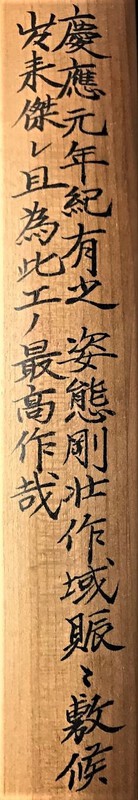 慶應元年紀有之 姿態剛壮作域賑〻敷候
出来傑レ且為此工ノ最高作哉